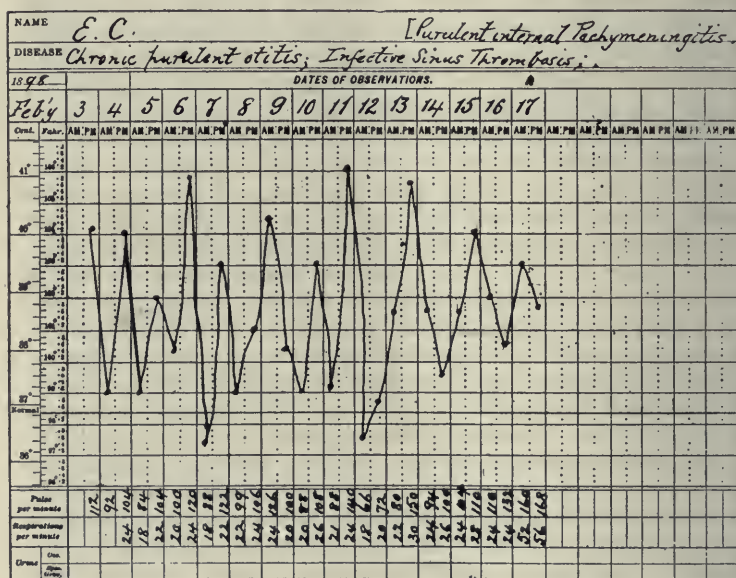 NAME E. C. [Purulent internal Pachymeningitis.
DISEASE Chronic purulent otitis; Infective Sinus Thrombosis;
1898 DATES OF OBSERVATIONS.
Feb'y 3 4 5 6 7 8 9 10 11 12 13 14 15 16 17
Cent. Fahr. AM PM AM PM AM PM AM PM AM PM AM PM AM PM AM PM AM PM AM PM AM PM AM PM AM PM AM PM AM PM AM PM AM PM AM PM AM PM AM PM AM PM
41°
40°
39°
38°
37°
Normal
36°
Pulse per minute 112 92 104 84 104 100 120 88 122 99 106 126 100 88 108 88 140 66 72 80 150 94 100 104 110 110 132 160 168
Respirations per minute 24 18 22 20 24 18 22 22 24 24 20 20 26 21 24 18 20 22 30 24 26 24 28 24 24 52 56
Urine